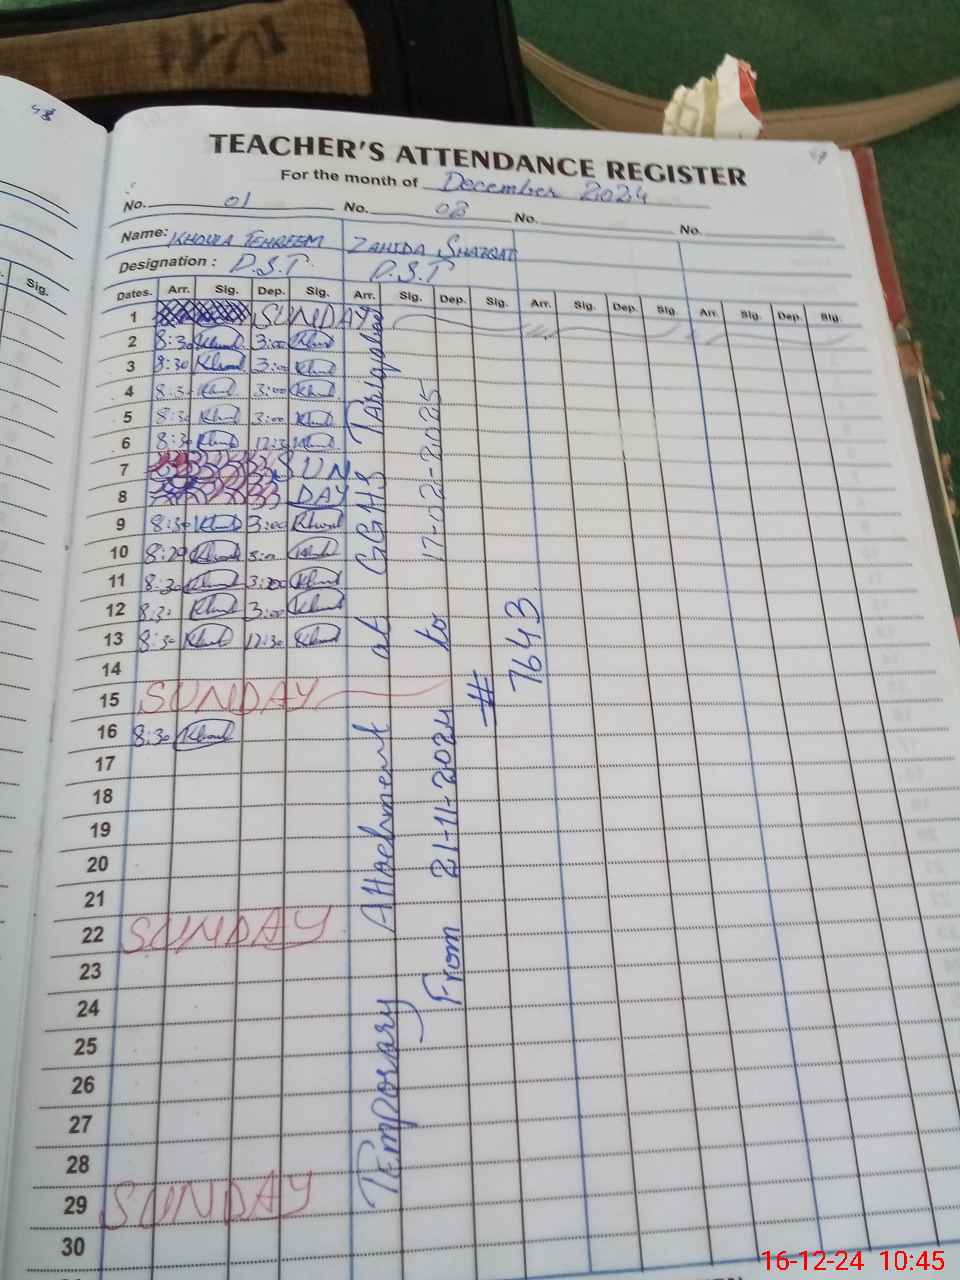 TEACHER'S ATTENDANCE REGISTER
For the month of December 2024
No. 01 No. 02 No. No.
Name: KHOULA TEHREEM ZAHIDA SHAFQAT
Designation : P.S.T P.S.T
Sig. Dates. Arr. Sig. Dep. Sig. Arr. Sig. Dep. Sig. Arr. Sig. Dep. Sig. Arr. Sig. Dep. Sig.
1 SUNDAY
2 8:30 3:00
3 8:30 3:00
4 8:30 3:00
5 8:30 3:00
6 8:30 12:30
7 SUN
8 DAY
9 8:30 3:00
10 8:29 3:00
11 8:30 3:00
12 8:31 3:00
13 8:30 12:30
14
15 SUNDAY
16 8:30
17
18
19
20
21
22 SUNDAY
23
24
25
26
27
28
29 SUNDAY
30
Temporary Attachment at GGHS
From 21-11-2024 to 17-02-2025
# 7643
16-12-24 10:45